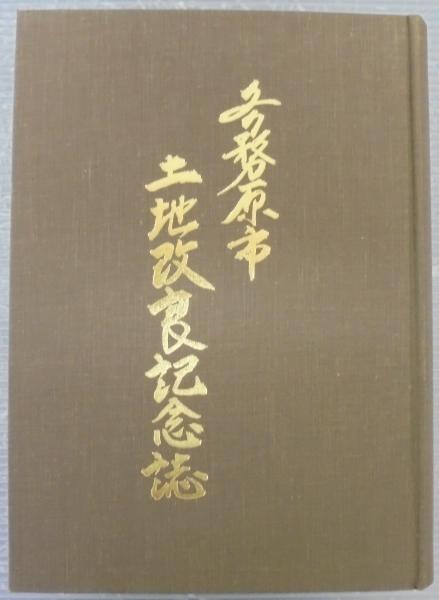 各務原市
土地改良記念誌